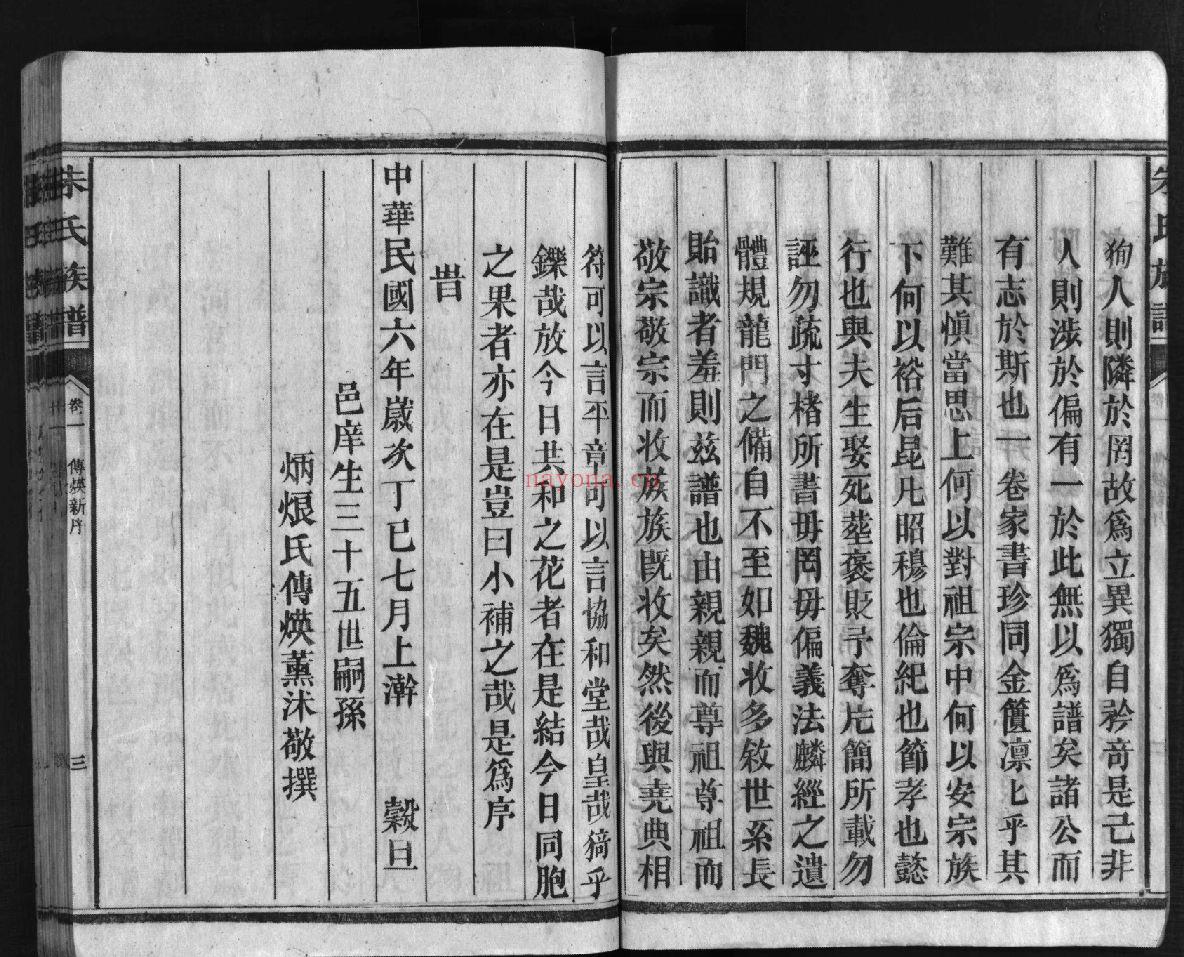 狥人則隣於罔故爲立異獨自矜竒是己非
人則涉於偏有一於此無以爲譜矣諸公而
有志於斯也一卷家書珍同金匱凛匕乎其
難其慎當思上何以對祖宗中何以安宗族
下何以裕后昆凡昭穆也倫紀也節孝也懿
行也與夫生娶死塟褒貶予奪片簡所載勿
誣勿疏寸楮所書毋罔毋偏義法麟經之遺
體規龍門之備自不至如魏收多敘世系長
貽識者羞則兹譜也由親親而尊祖尊祖而
敬宗敬宗而收族族既收矣然後與堯典相
符可以言平章可以言協和堂哉皇哉猗乎
鑠哉放今日共和之花者在是結今日同胞
之果者亦在是豈曰小補之哉是爲序
旹
中華民國六年歲次丁巳七月上澣 穀旦
邑庠生三十五世嗣孫
炳烺氏傳煐薰沐敬撰
朱氏族譜 卷一 傳煐新序 三
朱氏族譜
nayona.cn